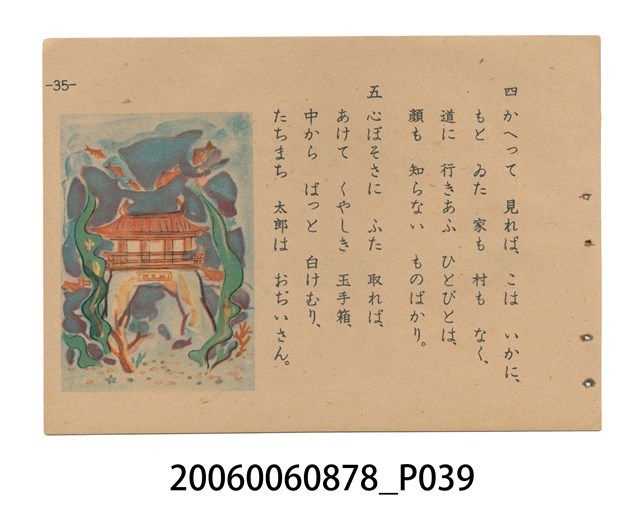 -35-
四 かへって 見れば、こは いかに、
もと ゐた 家も 村も なく、
道に 行きあふ ひとびとは、
顔も 知らない ものばかり。
五 心ぼそさに ふた 取れば、
あけて くやしき 玉手箱、
中から ぱっと 白けむり、
たちまち 太郎は おぢいさん。
20060060878_P039